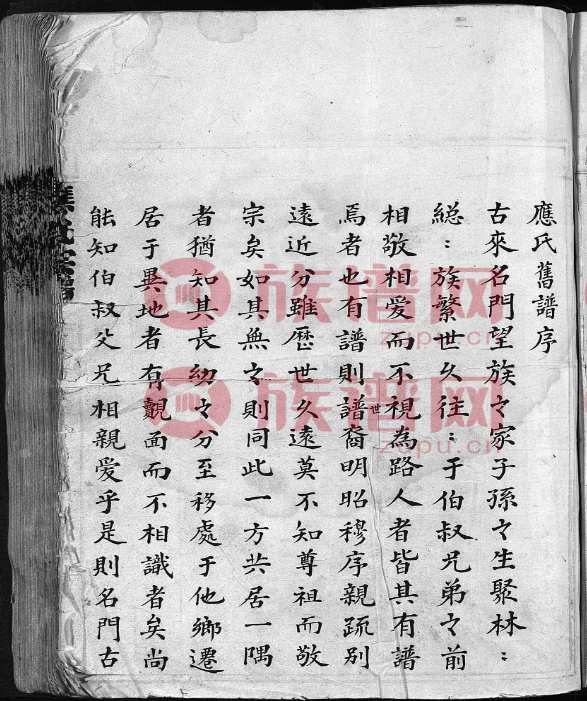 應氏舊譜序
古來名門望族々家子孫々生聚林：
總：族繁世久徃：于伯叔兄弟々前
相敬相爱而不視為路人者皆其有譜
焉者也有譜則譜世裔明昭穆序親疏别
遠近分雖歷世久遠莫不知尊祖而敬
宗矣如其無々則同此一方共居一隅
者猶知其長幼々分至移處于他鄉遷
居于異地者有覿面而不相識者矣尚
能知伯叔父兄相親爱乎是則名門古
族譜网
zupu.cn
族譜网
zupu.cn